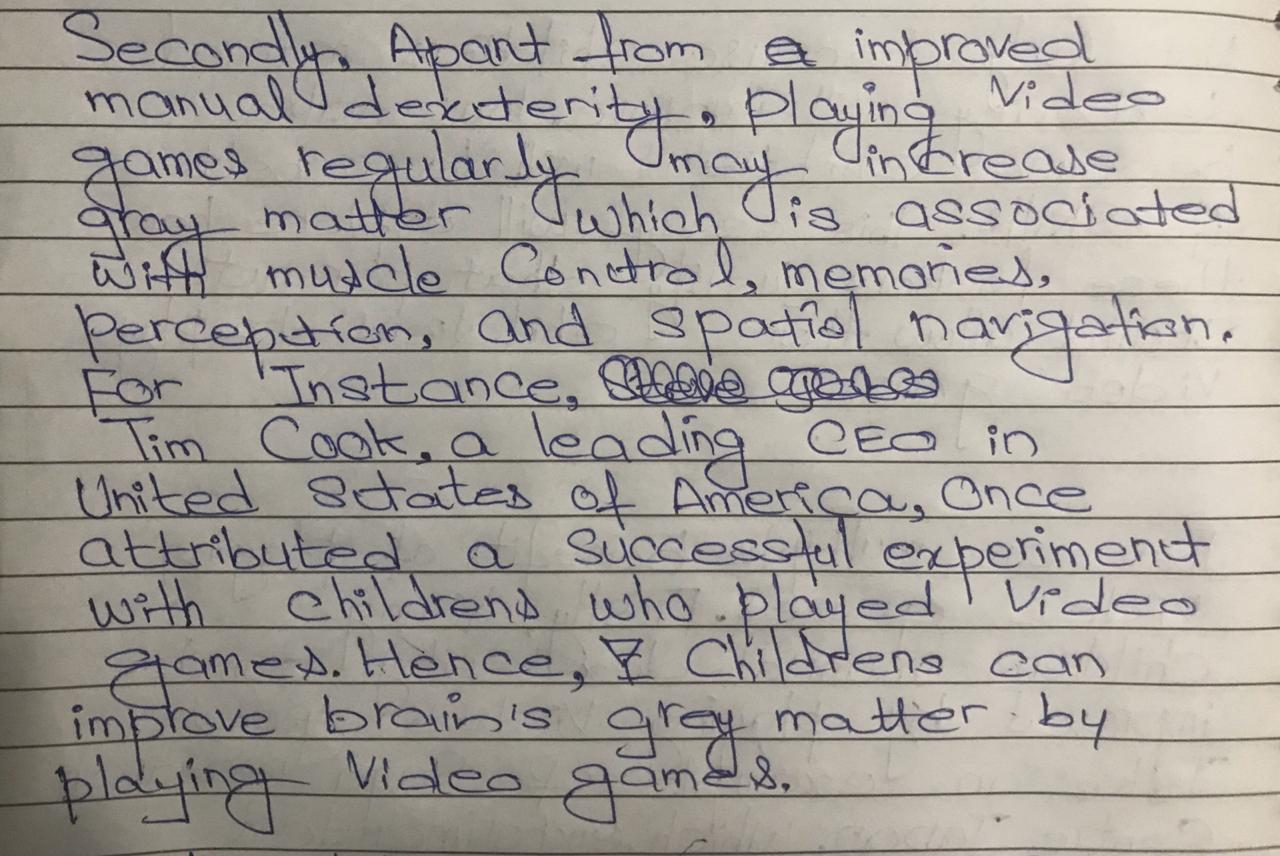 Secondly, Apart from improved
manual dexterity, playing Video
games regularly may increase
gray matter which is associated
with muscle Control, memories,
perception, and spatial navigation.
For Instance,
Tim Cook, a leading CEO in
United States of America, Once
attributed a successful experiment
with childrens who played Video
games. Hence, Childrens can
improve brain's grey matter by
playing Video games.